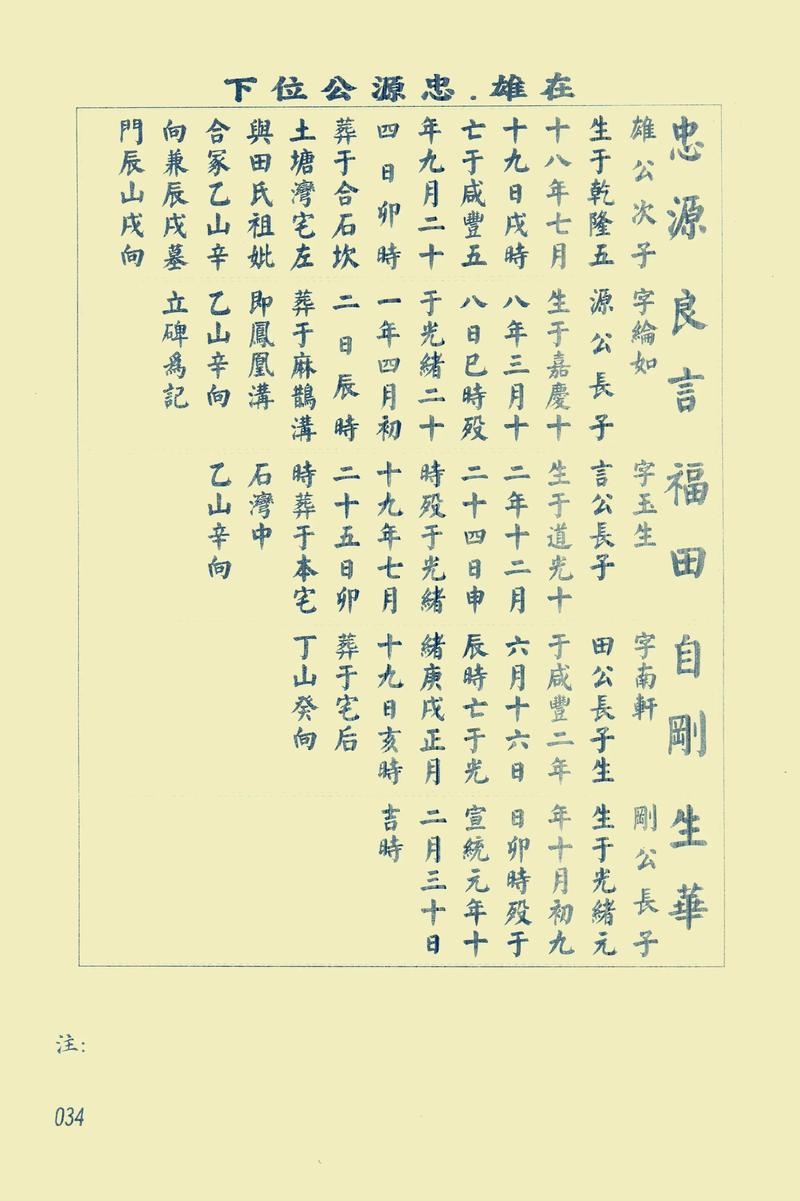 在雄．忠源公位下
忠源
雄公次子
生于乾隆五
十八年七月
十九日戌時
亡于咸豐五
年九月二十
四日卯時
葬于合石坎
土塘灣宅左
與田氏祖妣
合冢乙山辛
向兼辰戌墓
門辰山戌向
良言
字綸如
源公長子
生于嘉慶十
八年三月十
八日巳時歿
于光緒二十
一年四月初
二日辰時
葬于麻鵲溝
即鳳凰溝
乙山辛向
立碑爲記
福田
字玉生
言公長子
生于道光十
二年十二月
二十四日申
時歿于光緒
十九年七月
二十五日卯
時葬于本宅
石灣中
乙山辛向
自剛
字南軒
田公長子生
于咸豐二年
六月十六日
辰時亡于光
緒庚戌正月
十九日亥時
葬于宅后
丁山癸向
生華
剛公長子
生于光緒元
年十月初九
日卯時歿于
宣統元年十
二月三十日
吉時
注:
034